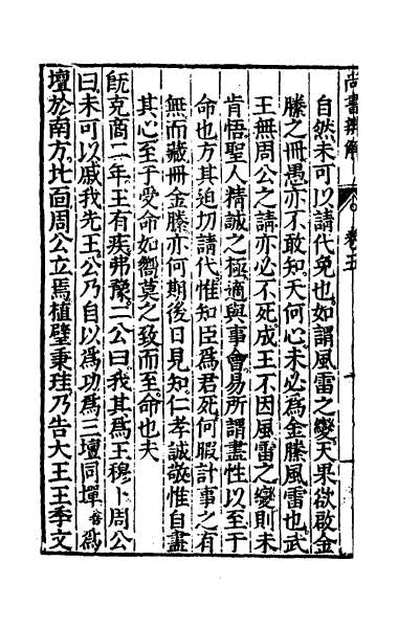 尚書辨解 卷五
自然未可以請代免也如謂風雷之變天果欲啟金
縢之冊愚亦不敢知天何心未必為金縢風雷也武
王無周公之請亦必不死成王不因風雷之變則未
肯悟聖人精誠之極適與事會易所謂盡性以至于
命也方其迫切請代惟知臣為君死何暇計事之有
無而藏冊金縢亦何期後日見知仁孝誠敬惟自盡
其心至于受命如嚮莫之致而至命也夫
旣克商二年王有疾弗豫二公曰我其爲王穆卜周公
曰未可以戚我先王公乃自以爲功爲三壇同墠 爲
壇於南方北面周公立焉植璧秉珪乃告大王王季文